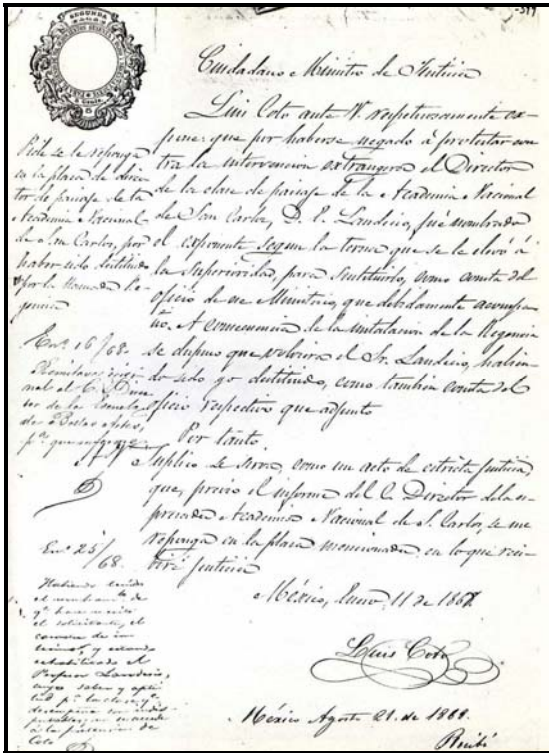 SEGUNDA
Ciudadano Ministro de Justicia
Luis Coto ante V. respetuosamente ex-
pone: que por haberse negado á protestar con
tra la intervencion extrangera el Director
de la clase de paisage de la Academia Nacional
de San Carlos, D. E. Landesio, fué nombrado
el exponente segun la terna que se le elevó á
la Superioridad, para sustituirlo, como consta del
oficio de ese Ministerio, que debidamente acompa
ño. A consecuencia de la instalacion de la Regencia
se dispuso que volviera el Sr. Landesio, habien
do sido yo destituido, como tambien consta del
oficio respectivo que adjunto
Por tanto
A V. suplico se sirva, como un acto de estricta justicia,
que, previo el informe del C. Director de la ex-
presada Academia Nacional de S. Carlos, se me
reponga en la plaza mencionada en lo que reci-
biré justicia
México, Enero, 11 de 1868.
Luis Coto
México Agosto 21. de 1868.
Recibí
Pide se le reponga
en la plaza de direc
tor de paisage de la
Academia Nacional
de San Carlos, por
haber sido destituido
por la llamada Re-
gencia
Enº 16/68.
Remítase origi
nal al C. Direc
tor de la Escuela
de Bellas Artes,
pª que informe
Enº 25/
68.
Habiendo tenido
el nombramto de
qe hace mérito
el solicitante, el
caracter de in
terino, y estando
rehabilitado el
Profesor Landesio,
cuyo saber y apti
tud pª la clase qe
desempeña son indis
putables, no se accede
á la peticion de
Coto